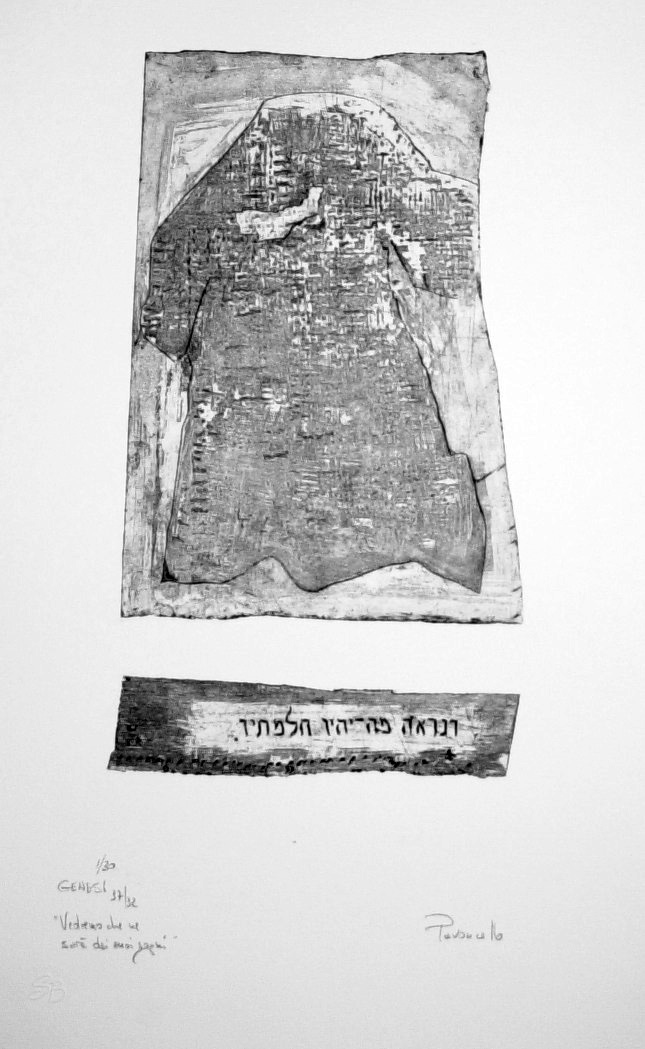 ונראה מה־יהיו חלמתיו.
1/30
GENESI 37/32
"Vedremo che ne
sarà dei suoi sogni"
SB